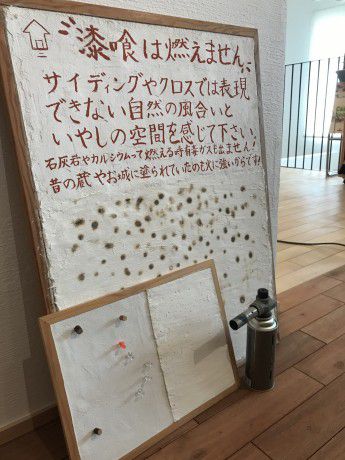 漆喰は燃えません
サイディングやクロスでは表現
できない自然の風合いと
いやしの空間を感じて下さい。
石灰岩やカルシウムって燃える時有毒ガスも出ません!
昔の蔵やお城に塗られていたのも火に強いからです!